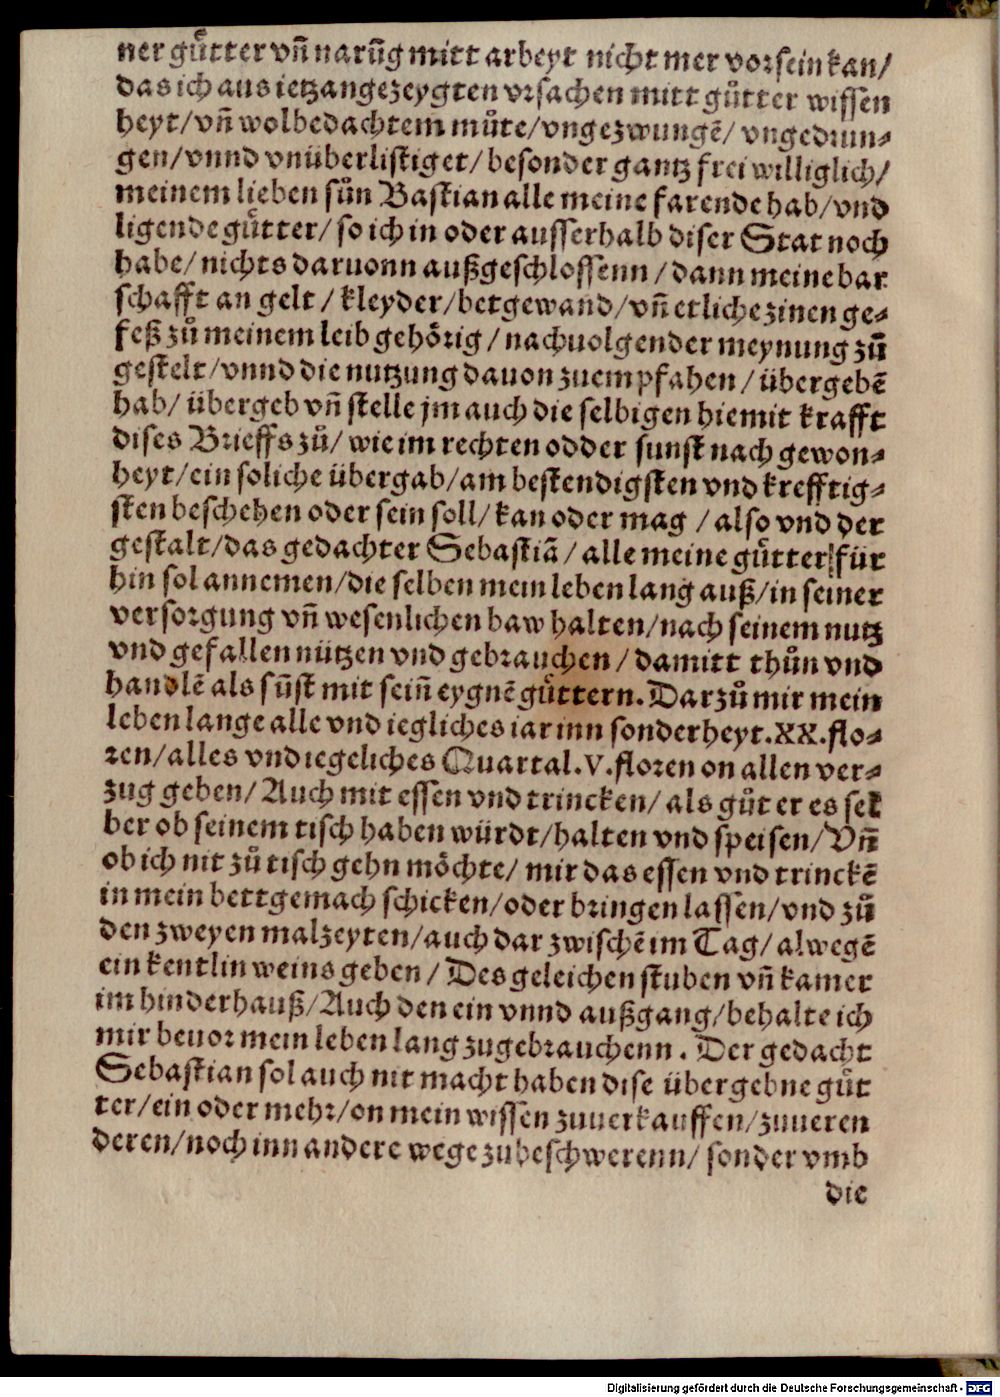 ner guͤtter vnd̃ narũg mitt arbeyt nicht mer vorsein kan/
das ich aus ietzangezeygten vrsachen mitt guͦtter wissen
heyt/vñ wolbedachtem muͦte/vngezwungẽ/ vngedrun⸗
gen/vnnd vnüberlistiget/ besonder gantz frei williglich/
meinem lieben suͦn Bastian alle meine farende hab/vnd
ligende guͤtter/ so ich in oder ausserhalb diser Stat noch
habe/ nichts daruonn außgeschlossenn / dann meine bar
schafft an gelt / kleyder/betgewand/vñ etliche zinen ge⸗
feß zuͦ meinem leib gehoͤrig / nachuolgender meynung zuͦ
gestelt/vnnd die nutzung dauon zuempfahen / übergebẽ
hab/ übergeb vñ stelle jm auch die selbigen hiemit krafft
dises Brieffs zuͦ/ wie im rechten odder sunst nach gewon⸗
heyt/ein soliche übergab/am bestendigsten vnd krefftig⸗
sten beschehen oder sein soll/ kan oder mag / also vnd der
gestalt/das gedachter Sebastiã / alle meine guͤtter/für
hin sol annemen/die selben mein leben lang auß/in seiner
versorgung vñ wesenlichen baw halten/nach seinem nutz
vnd gefallen nützen vnd gebrauchen / damitt thuͦn vnd
handlẽ als sũst mit seiñ eygnẽ guͤttern. Darzuͦ mir mein
leben lange alle vnd iegliches iar inn sonderheyt.XX.flo⸗
ren/alles vnd iegeliches Quartal.V.floren on allen ver⸗
zug geben/ Auch mit essen vnd trincken/ als guͦt er es sel
ber ob seinem tisch haben würdt/halten vnd speisen/ Vñ
ob ich nit zuͦ tisch gehn moͤchte/ mir das essen vnd trinckẽ
in mein bettgemach schicken/oder bringen lassen/vnd zuͦ
den zweyen malzeyten/auch dar zwischẽ im Tag/ alwegẽ
ein kentlin weins geben / Des geleichen stuben vñ kamer
im hinderhauß/Auch den ein vnnd außgang/behalte ich
mir beuor mein leben lang zugebrauchenn . Der gedacht
Sebastian sol auch nit macht haben dise übergebne guͦt
ter/ein oder mehr/on mein wissen zuuerkauffen/zuueren
deren/noch inn andere wege zubeschwerenn/ sonder vmb
die
Digitalisierung gefördert durch die Deutsche Forschungsgemeinschaft - DFG